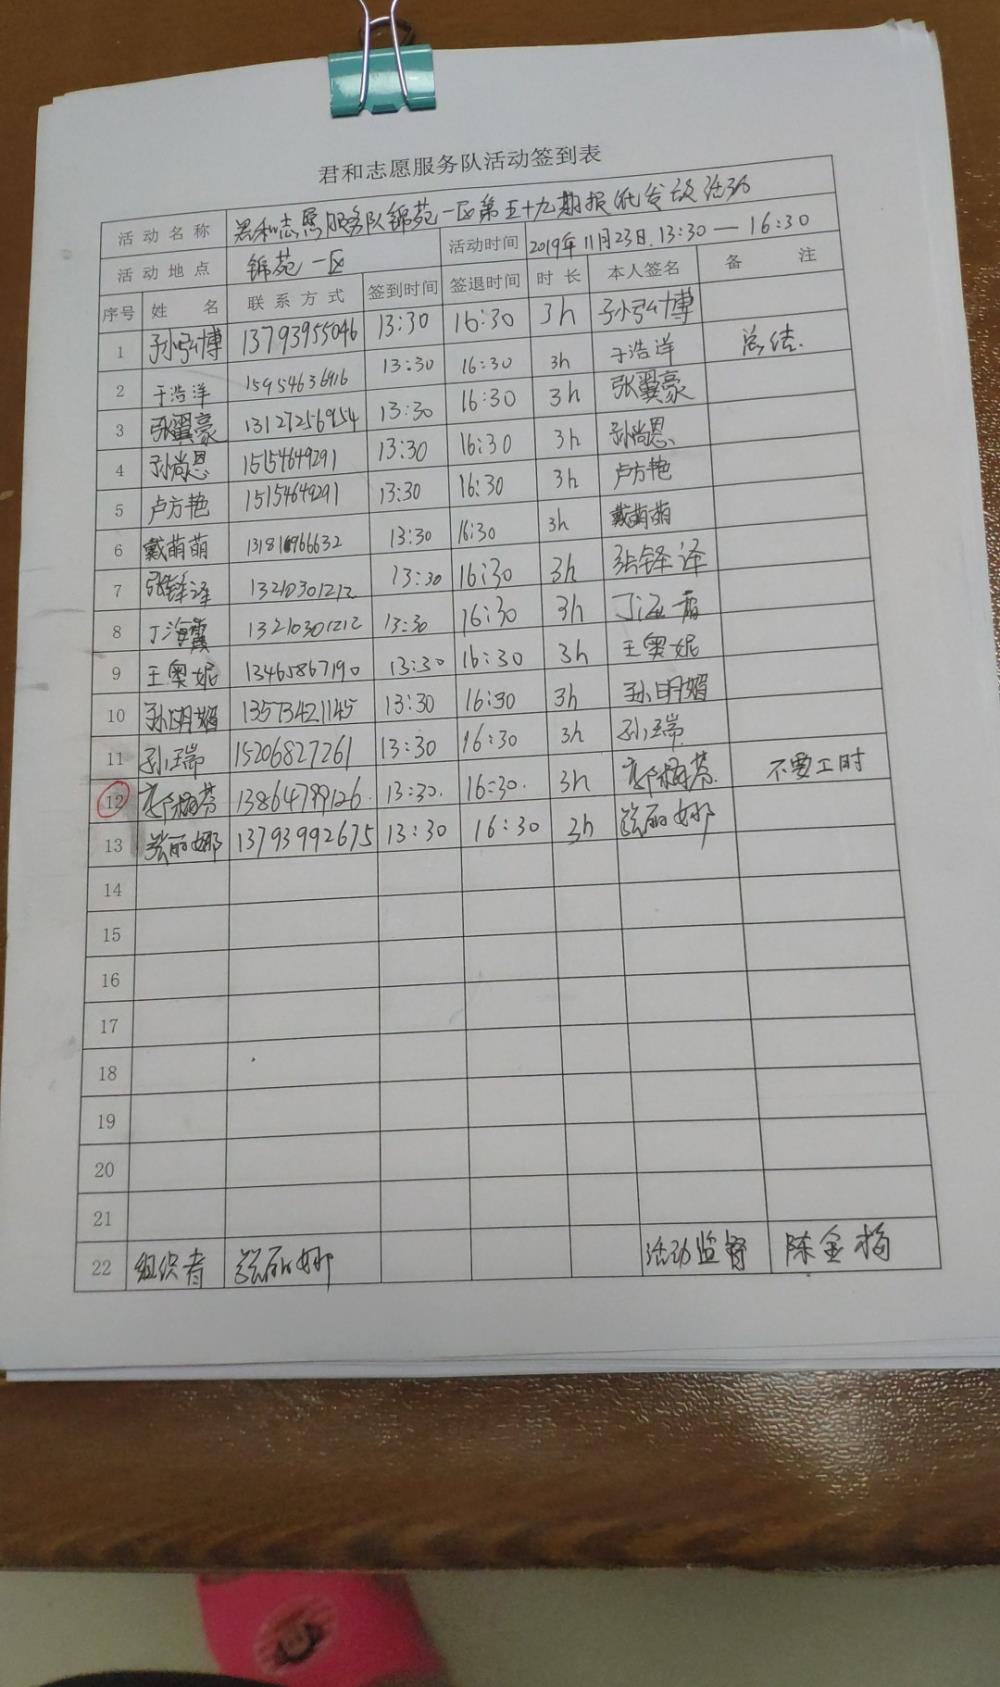 君和志愿服务队活动签到表
活动名称 君和志愿服务队锦苑一区第五十九期报纸发放活动
活动地点 锦苑一区 活动时间 2019年11月23日.13:30—16:30
序号 姓名 联系方式 签到时间 签退时间 时长 本人签名 备注
1 孙弘博 13793955046 13:30 16:30 3h 孙弘博
2 于浩洋 15954636916 13:30 16:30 3h 于浩洋 总结.
3 张翼豪 13127256954 13:30 16:30 3h 张翼豪
4 孙尚恩 15154649291 13:30 16:30 3h 孙尚恩
5 卢方艳 15154649291 13:30 16:30 3h 卢方艳
6 戴萌萌 13:30 16:30 3h 戴萌萌
7 张铎译 13210301212 13:30 16:30 3h 张铎译
8 丁海霞 13210301212 13:30 16:30 3h 丁海霞
9 王奥妮 13465867190 13:30 16:30 3h 王奥妮
10 孙明媚 13573421145 13:30 16:30 3h 孙明媚
11 孙瑞 15206827261 13:30 16:30 3h 孙瑞
12 13864799126. 13:30. 16:30. 3h 不要工时
13 张丽娜 13793992675 13:30 16:30 3h 张丽娜
14
15
16
17
18
19
20
21
22 组织者 张丽娜 活动监督 陈金梅